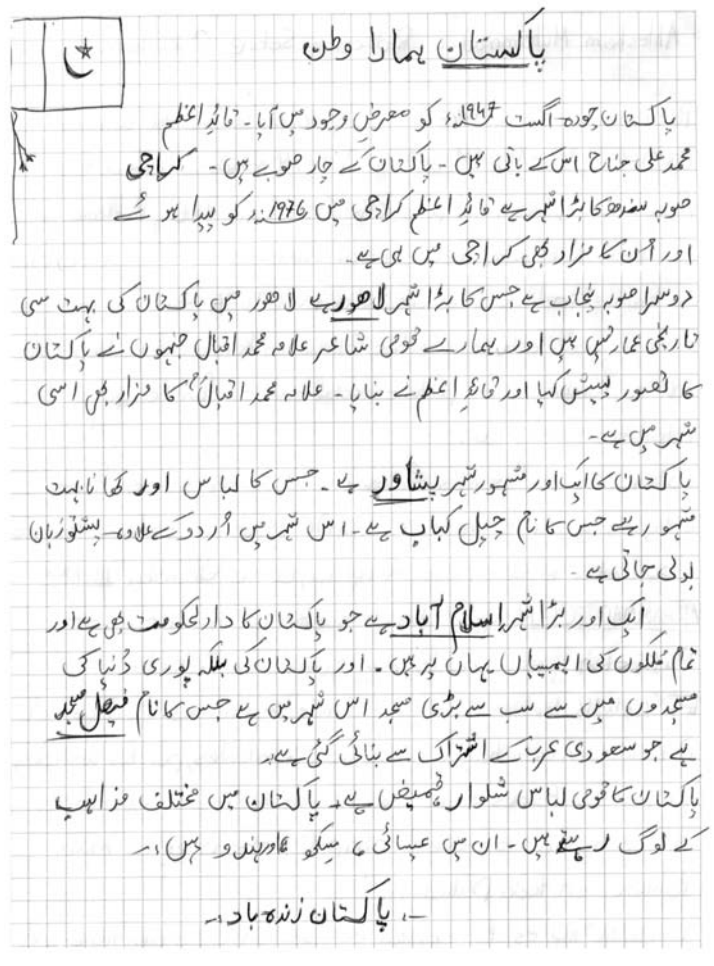 پاکستان ہمارا وطن
پاکستان چودہ اگست 1947ء کو معرضِ وجود میں آیا۔ قائدِ اعظم
محمد علی جناح اس کے بانی ہیں ۔ پاکستان کے چار صوبے ہیں ۔ کراچی
صوبہ سندھ کا بڑا شہر ہے قائدِ اعظم کراچی میں 1976ء کو پیدا ہوئے
اور اُن کا مزار بھی کراچی میں ہی ہے۔
دوسرا صوبہ پنجاب ہے جس کا بڑا شہر لاھور ہے لاھور میں پاکستان کی بہت سی
تاریخی عمارتیں ہیں اور ہمارے قومی شاعر علامہ محمد اقبال جنہوں نے پاکستان
کا تصور پیش کیا اور قائدِ اعظم نے بنایا ۔ علامہ محمد اقبالؒ کا مزار بھی اسی
شہر میں ہے۔
پاکستان کا ایک اور مشہور شہر پشاور ہے ۔ جس کا لباس اور کھانا بہت
مشہور ہے جس کا نام چپل کباب ہے ۔ اس شہر میں اُردو کے علاوہ پشتو زبان
بولی جاتی ہے ۔
ایک اور بڑا شہر اسلام آباد ہے جو پاکستان کا دارلحکومت بھی ہے اور
تمام مُلکوں کی ایمبیسیاں یہاں پر ہیں ۔ اور پاکستان کی بلکہ پوری دُنیا کی
مسجدوں میں سے سب سے بڑی مسجد اس شہر میں ہے جس کا نام فیصل مسجد
ہے جو سعودی عرب کے اشتراک سے بنائی گئی ہے۔
پاکستان کا قومی لباس شلوار قمیض ہے۔ پاکستان میں مختلف مذاہب
کے لوگ رہتے ہیں ۔ ان میں عیسائی، سکھ اور ہندو ہیں۔
پاکستان زندہ باد۔